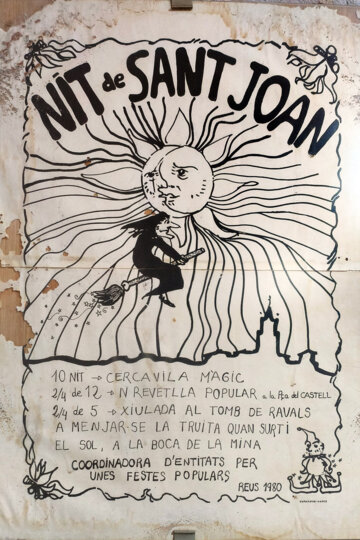 NIT de SANT JOAN
10 NIT → CERCAVILA MÀGIC
2/4 de 12 → N REVETLLA POPULAR a la Pça del CASTELL
2/4 de 5 → XIULADA AL TOMB DE RAVALS
A MENJAR-SE LA TRUITA QUAN SURTI
EL SOL, A LA BOCA DE LA MINA
COORDINADORA D'ENTITATS PER
UNES FESTES POPULARS
REUS 1980